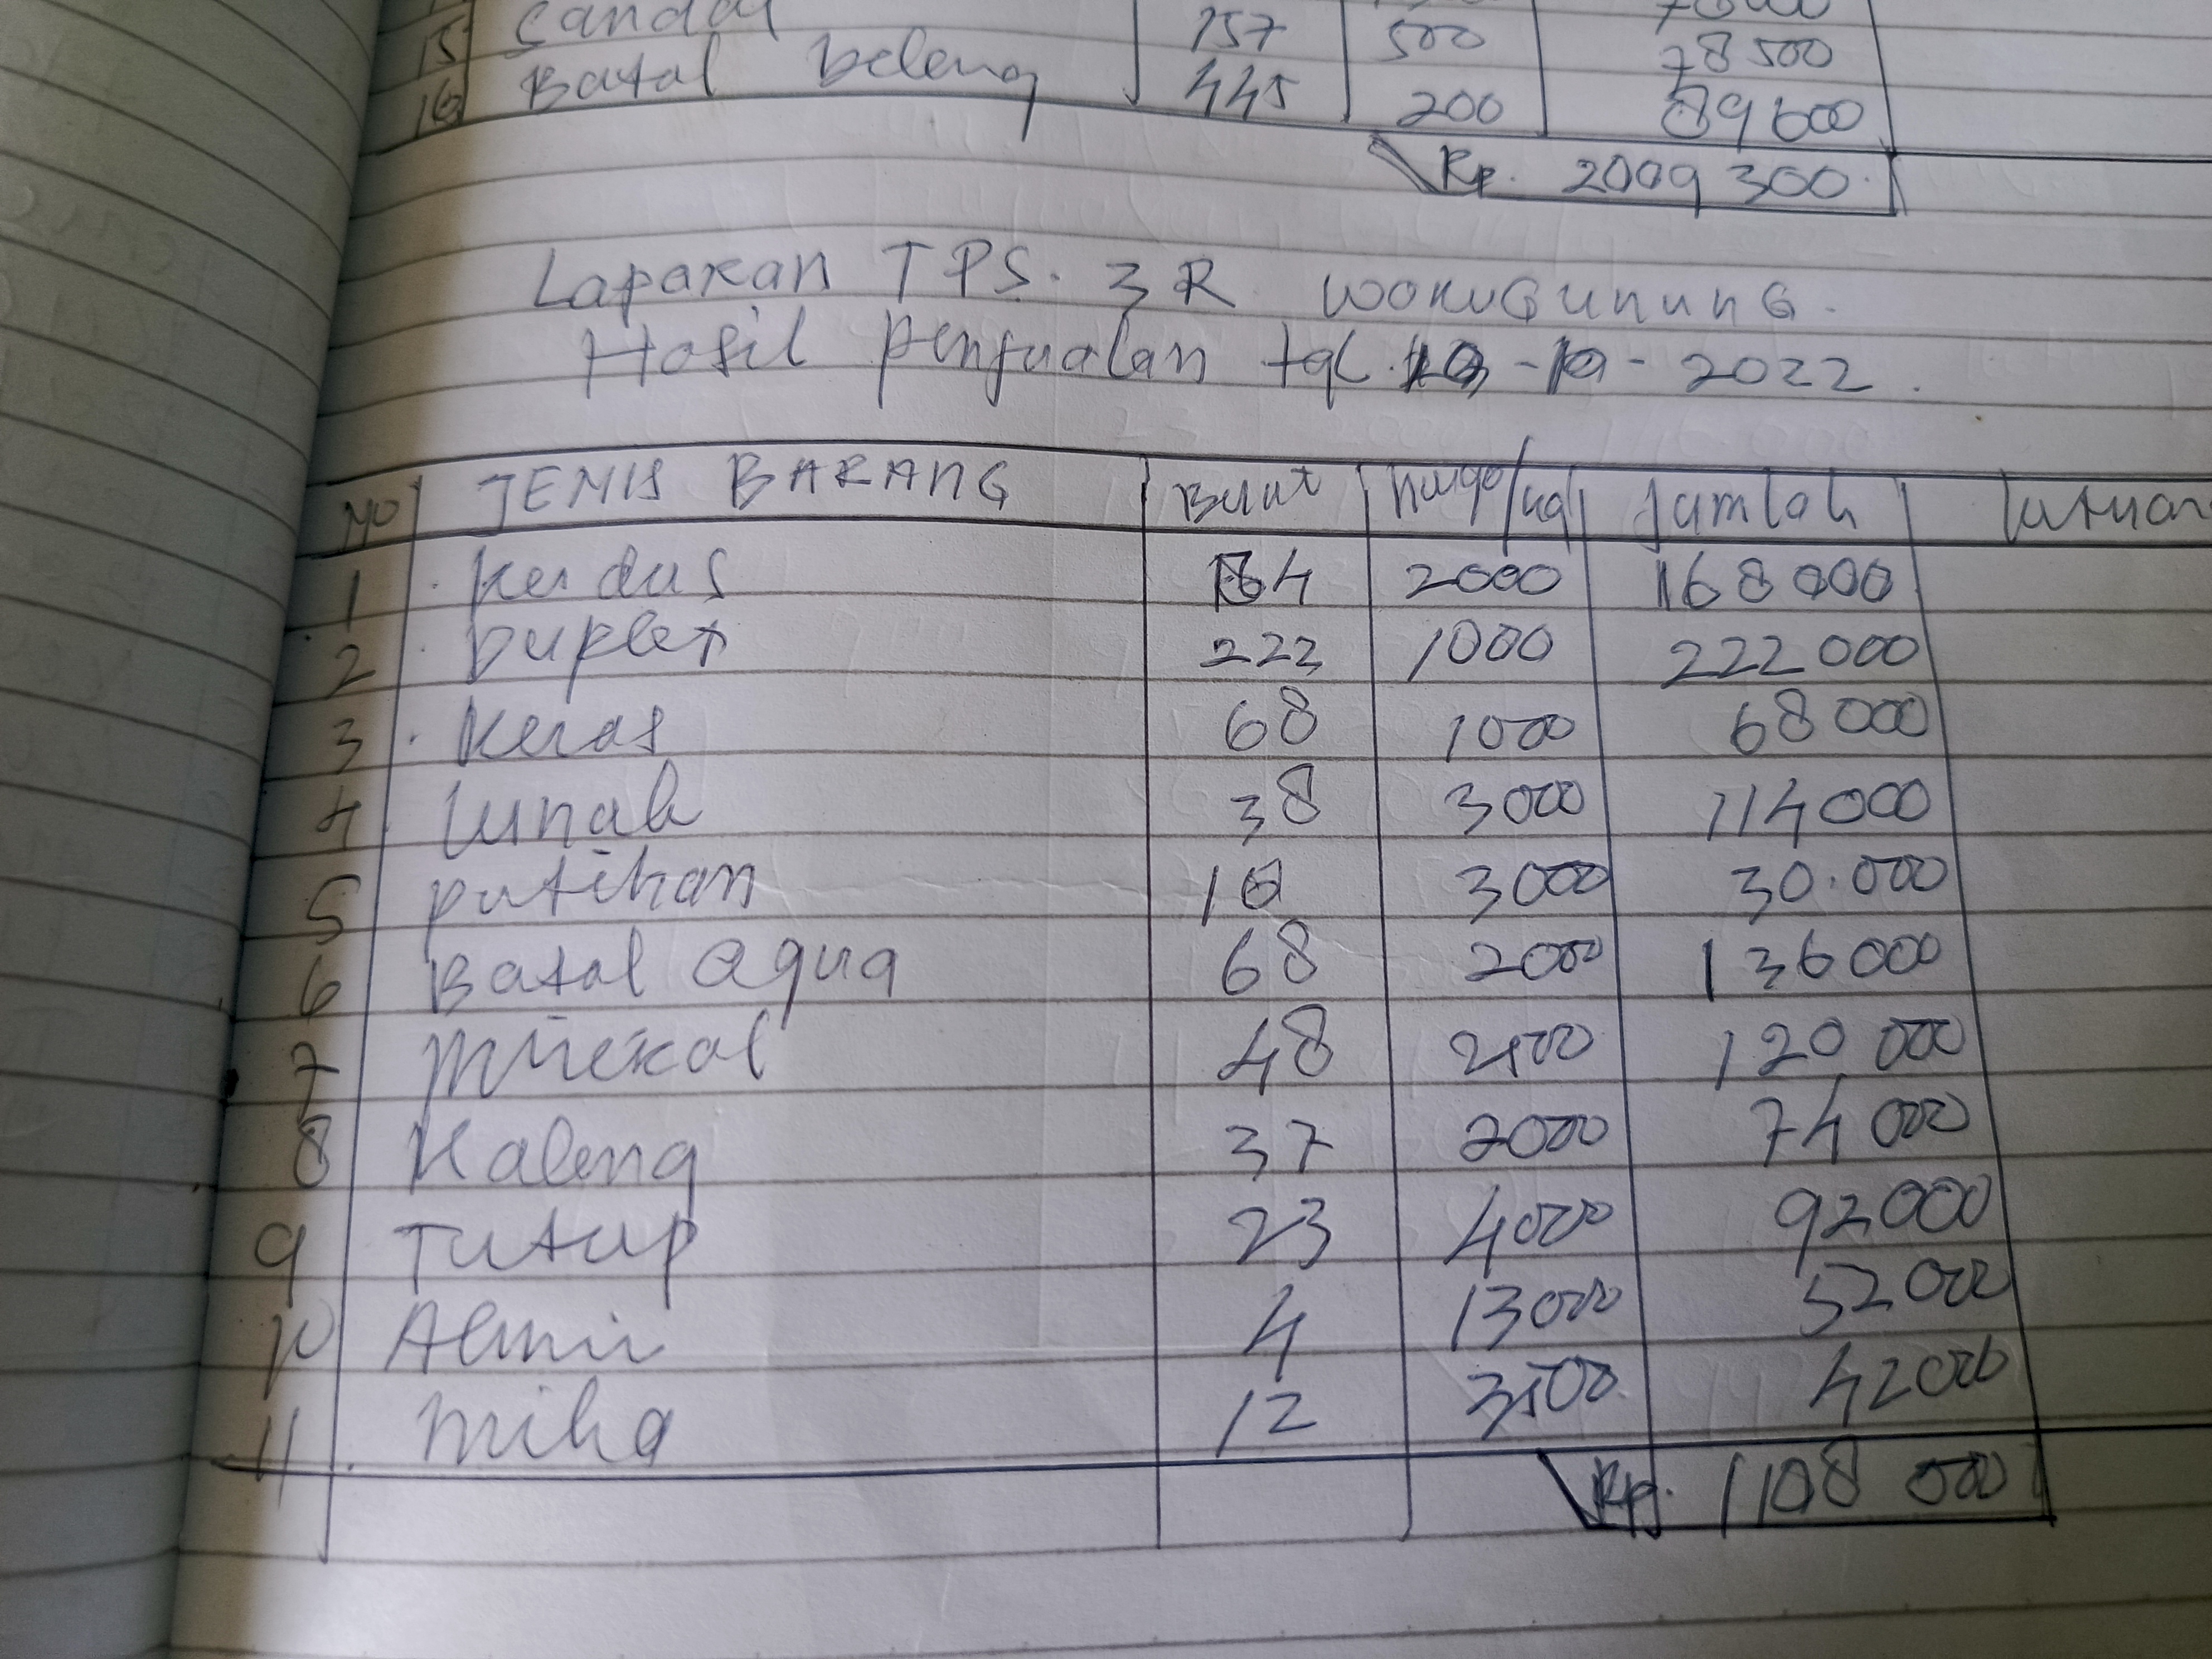 15 Sandal 157 500 78 500
16 Batal beleng 445 200 89 600
Rp. 2009 300
Laparan TPS. 3R WONUGUNUNG.
Hasil penjualan tgl - 10 - 2022.
NO JENIS BARANG Berat harga/kg Jumlah
1 Kerdus 84 2000 168 000
2 Duplex 222 1000 222 000
3 Keras 68 1000 68 000
4 Lunak 38 3000 114 000
5 putihan 10 3000 30.000
6 Batal aqua 68 2000 136 000
7 48 2500 120 000
8 Kaleng 37 2000 74 000
9 Tutup 23 4000 92000
10 Almin 4 13000 52000
11 mika 12 3500 42000
Rp. 1108 000